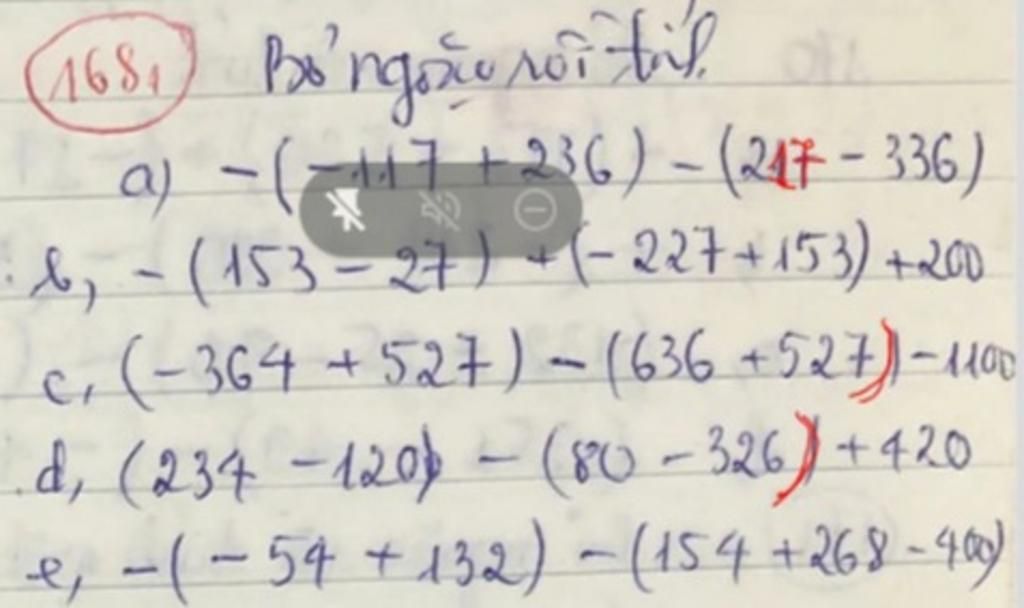 168,
Bỏ ngoặc rồi tính.
a) - (-117 + 236) - (217 - 336)
b, - (153 - 27) + (- 227 + 153) + 200
c, (-364 + 527) - (636 + 527) - 1100
d, (234 - 120) - (80 - 326) + 420
e, - (- 54 + 132) - (154 + 268 - 400)